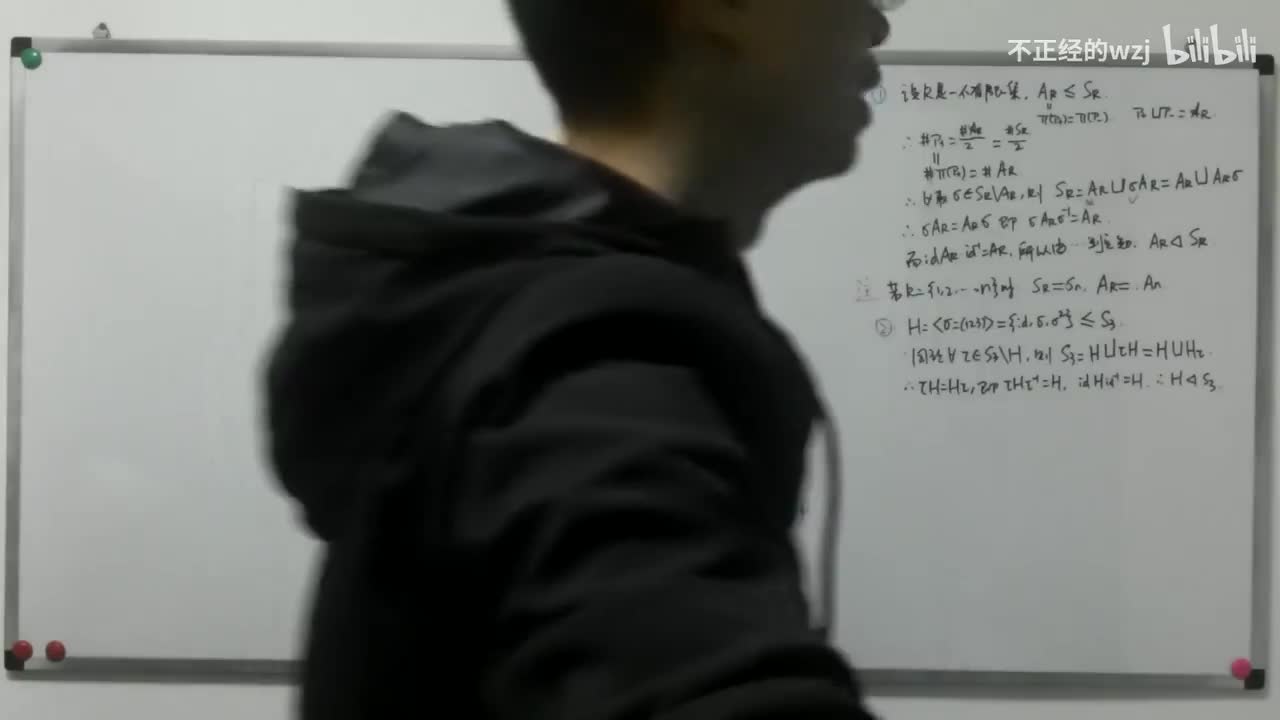 不正经的wzj bilibili
① 设R是一个有限集, A_R ≤ S_R.
π(P_3)=π(P_-). ⊔ = A_R
∴ # = #A_R/2 = #S_R/2
#π(P_3) = #A_R
∴ ∀取 σ∈S_R\A_R, 则 S_R = A_R⊔σA_R = A_R⊔A_Rσ
∴ σA_R=A_Rσ 即 σA_Rσ⁻¹=A_R.
而 idA_R id⁻¹=A_R, 所以由 … 知, A_R ◁ S_R
注 若R={1,2,…,n}时 S_R=S_n, A_R=A_n
② H=<σ=(123)>={id,σ,σ²} ≤ S_3.
同理∀τ∈S_3\H, 则 S_3=H⊔τH=H⊔Hτ.
∴ τH=Hτ, 即 τHτ⁻¹=H, idHid⁻¹=H ∴ H ◁ S_3